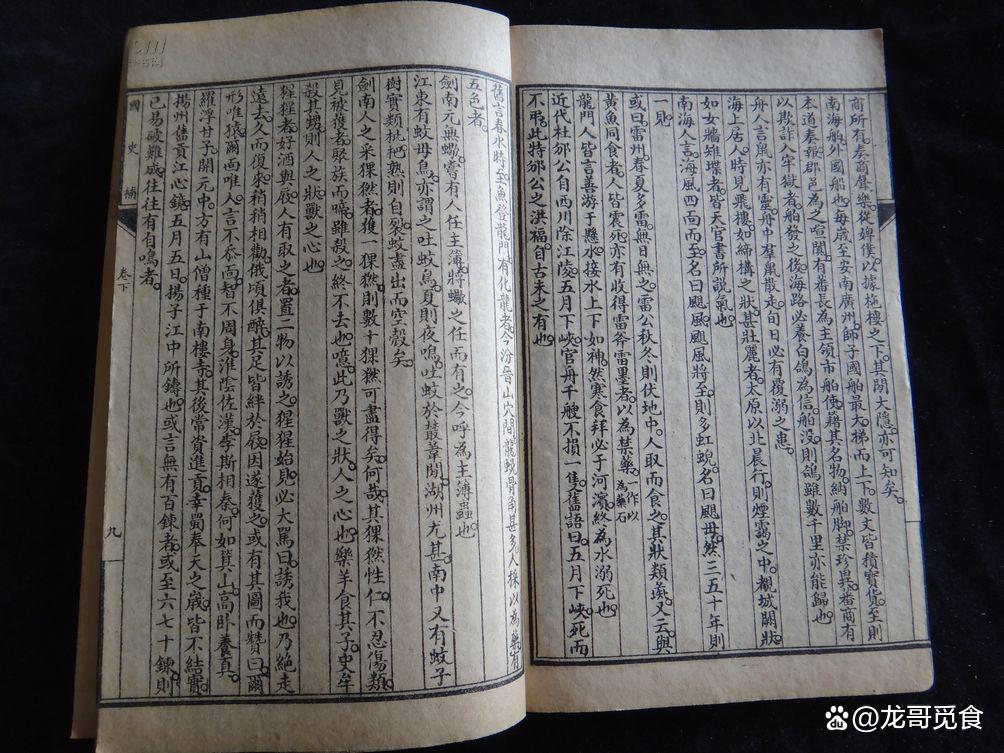 商所有。奏商聲樂。從婢僕。以據柂樓之下。其間大隱。亦可知矣。
南海舶。外國船也。每歲至安南廣州。師子國舶最大。梯而上下數丈。皆積寶貨。至則
本道奏報。郡邑為之喧闐。有番長為主領。市舶使籍其名物。納舶脚。禁珍異。番商有
以欺詐入牢獄者。舶發之後。海路必養白鴿為信。舶沒。則鴿雖數千里亦能歸也。
舟人言鼠亦有靈。舟中羣鼠散走。旬日必有覆溺之患。
海上居人。時見飛樓。如締構之狀。甚壯麗者。太原以北。晨行則煙靄之中。覩城闕狀。
如女牆雉堞者。皆天官書所說氣也。
南海人言。海風四面而至。名曰颶風。颶風將至。則多虹蜺。名曰颶母。然三五十年則
一見。
或曰雷州春夏多雷。無日無之。雷公秋冬則伏地中。人取而食之。其狀類彘。又云。與
黃魚同食者。人皆震死。亦有收得雷斧雷墨者。以為禁藥。一作以為藥石
龍門人皆言善游。于懸水接水上下如神。然寒食拜必于河濱。終為水溺死也。
近代杜邠公自西川除江陵。五月下峽。官舟千艘不損一隻。舊語曰。五月下峽。死而
不弔。此特邠公之洪福。自古未之有也。
舊言春水時至。魚登龍門。有化龍者。今汾晉山穴間。龍蛻骨角甚多。人採以為藥。有
五色者。
劍南元無蠍。嘗有人任主簿。將蠍之任而有之。今呼為主簿蟲也。
江東有蚊母鳥。亦謂之吐蚊鳥。夏則夜鳴。吐蚊於叢葦間。湖州尤甚。南中又有蚊子
樹。實類枇杷。熟則自裂。蚊盡出而空殼矣。
劍南人之采猓㺒者。獲一猓㺒。則數十猓㺒可盡得矣。何哉。其猓㺒性仁。不忍傷類。
見被獲者。聚族而啼。雖殺之。終不去也。噫。此乃獸之狀。人之心也。樂羊食其子。史牟
殺其甥。則人之狀。獸之心也。
猩猩者好酒與屐。人有取之者。置二物以誘之。猩猩始見。必大罵曰。誘我也。乃絕走
遠去。久而復來。稍稍相勸。俄頃俱醉。其足皆絆於屐。因遂獲之。或有其圖而贊曰。爾
形唯猿。爾面唯人。言不忝面。智不周身。淮陰佐漢。李斯相秦。何如箕山。高卧養真。
羅浮甘子。開元中。方有山僧種于南樓寺。其後常資進貢。幸蜀奉天之歲。皆不結實。
揚州舊貢江心鏡。五月五日。揚子江中所鑄也。或言無有百鍊者。或至六七十鍊。則
已易破難成。往往有自鳴者。
國史補
卷下
九
@龙哥觅食